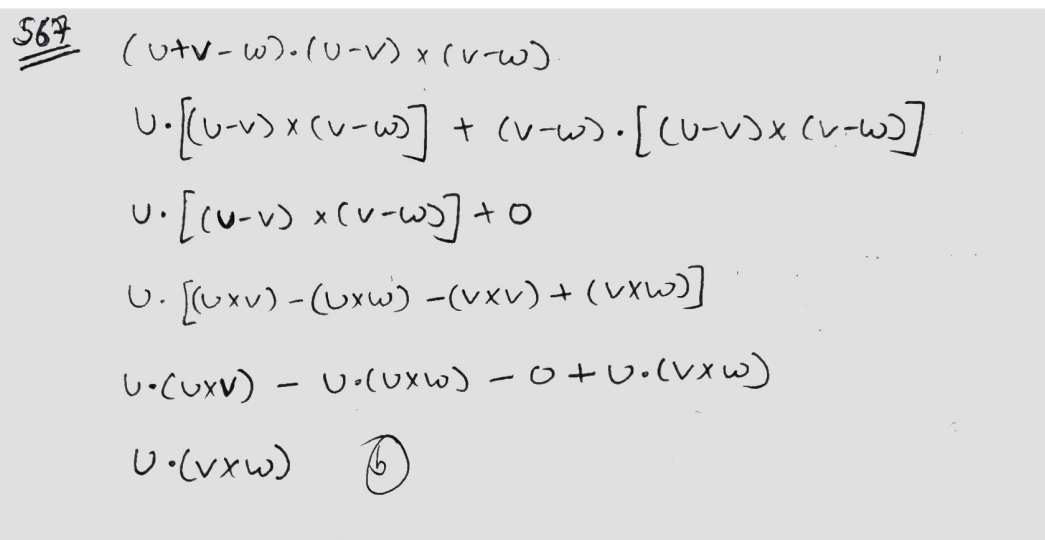 567 (U+V-W).(U-V) x (V-W)
U.[(U-V) x (V-W)] + (V-W).[(U-V) x (V-W)]
U.[(U-V) x (V-W)] + 0
U.[(UxV) - (UxW) - (VxV) + (VxW)]
U.(UxV) - U.(UxW) - 0 + U.(VxW)
U.(VxW) (b)